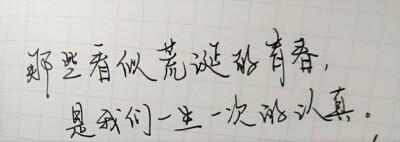 那些看似荒诞的青春，
是我们一生一次的认真。